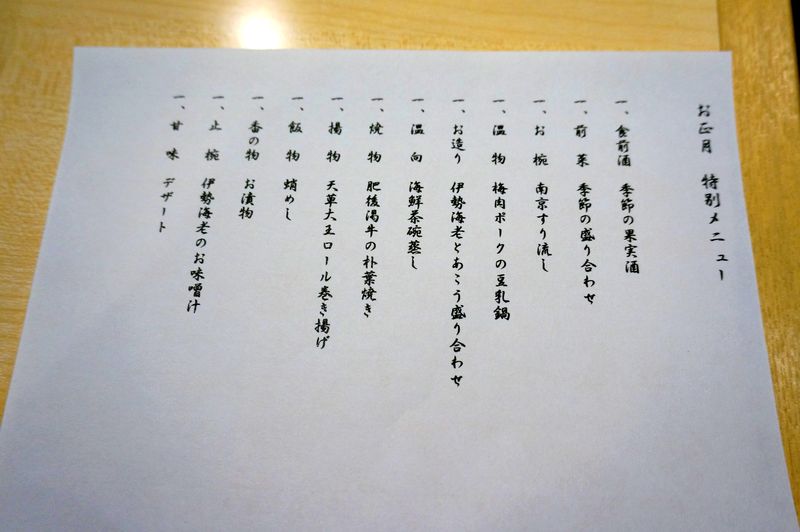 お正月 特別メニュー
一、食前酒 季節の果実酒
一、前菜 季節の盛り合わせ
一、お椀 南京すり流し
一、温物 梅肉ポークの豆乳鍋
一、お造り 伊勢海老とあこう盛り合わせ
一、温向 海鮮茶碗蒸し
一、焼物 肥後潟牛の朴葉焼き
一、揚物 天草大王ロール巻き揚げ
一、飯物 蛸めし
一、香の物 お漬物
一、止椀 伊勢海老のお味噌汁
一、甘味 デザート